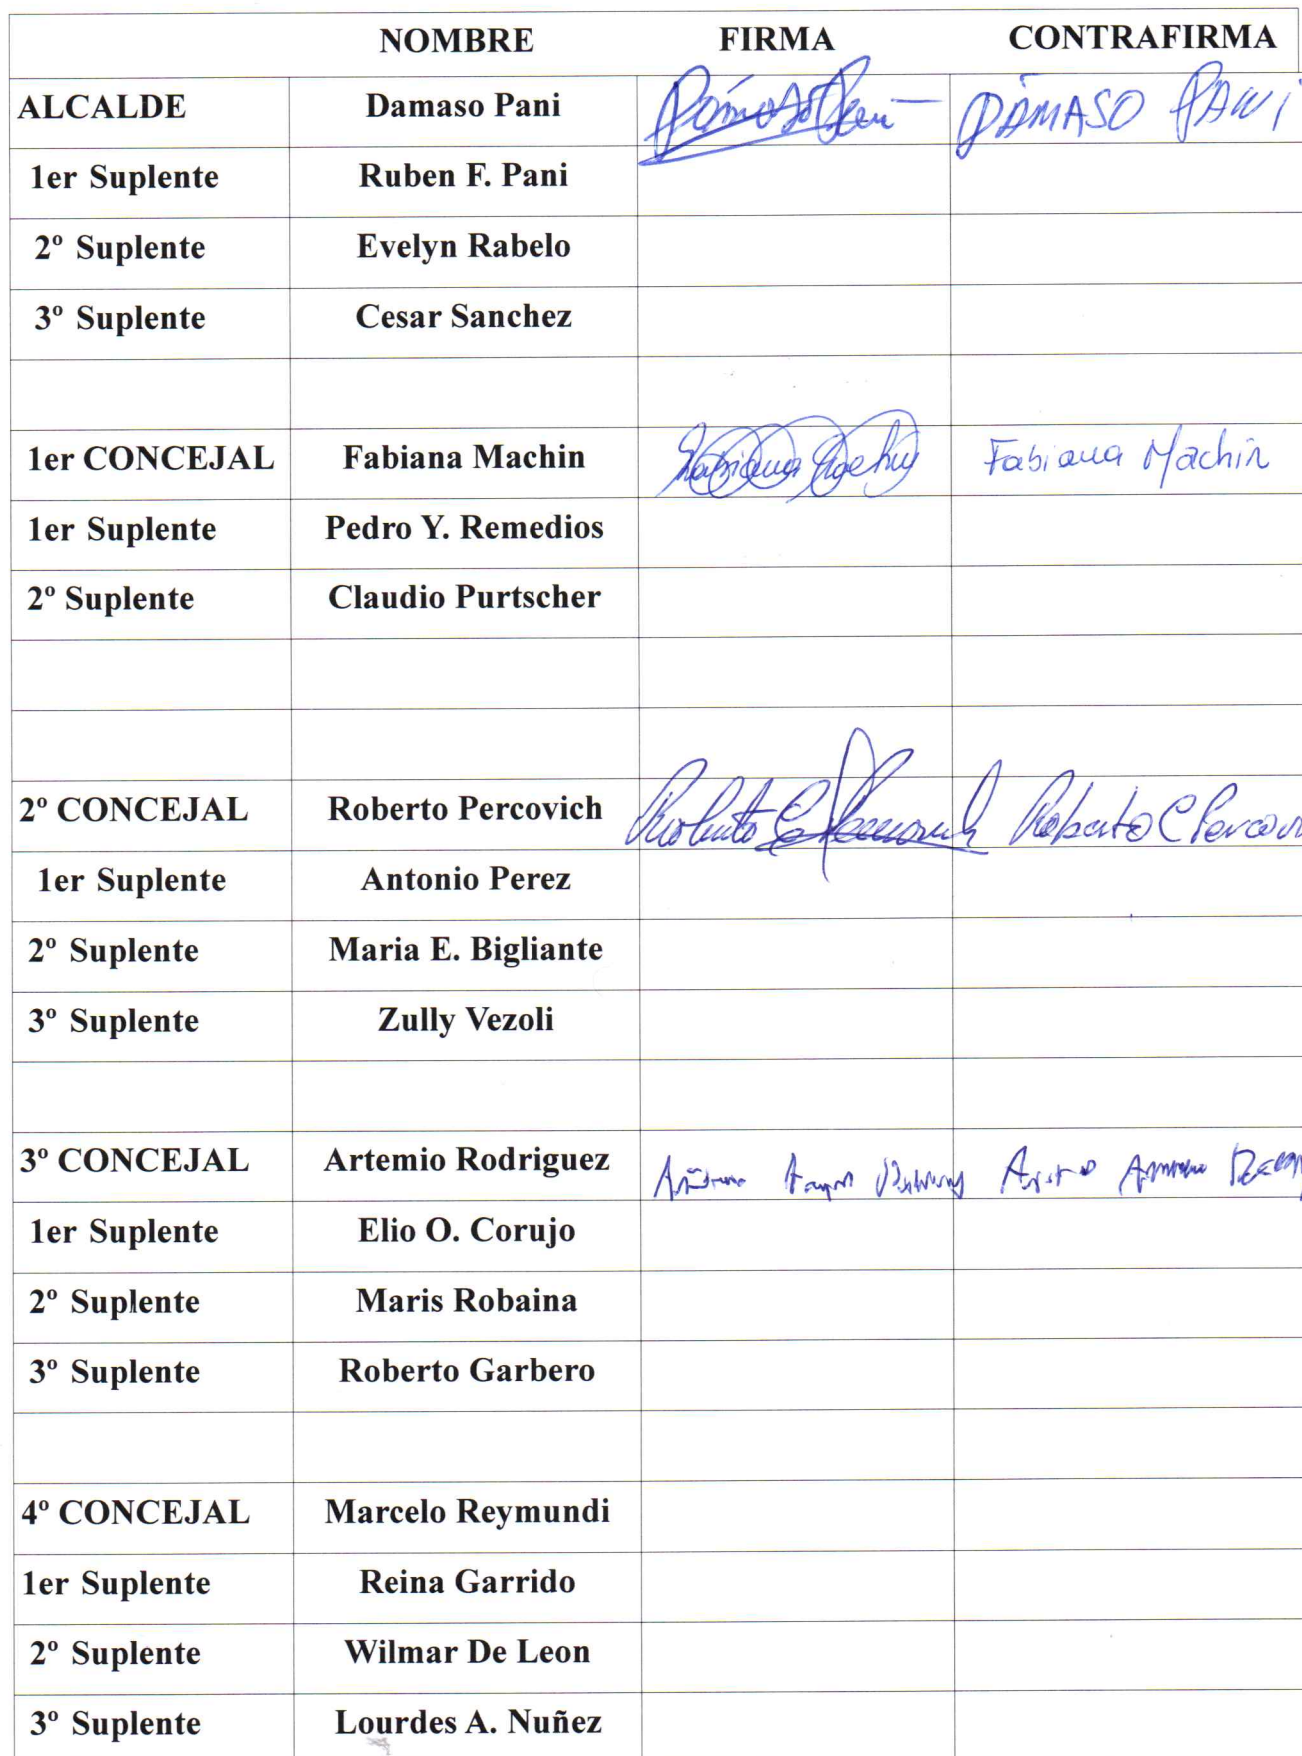 NOMBRE FIRMA CONTRAFIRMA
ALCALDE Damaso Pani Dámaso Pani DÁMASO PANI
1er Suplente Ruben F. Pani
2º Suplente Evelyn Rabelo
3º Suplente Cesar Sanchez
1er CONCEJAL Fabiana Machin Fabiana Machin Fabiana Machin
1er Suplente Pedro Y. Remedios
2º Suplente Claudio Purtscher
2º CONCEJAL Roberto Percovich Roberto C Roberto C Percovi
1er Suplente Antonio Perez
2º Suplente Maria E. Bigliante
3º Suplente Zully Vezoli
3º CONCEJAL Artemio Rodriguez
1er Suplente Elio O. Corujo
2º Suplente Maris Robaina
3º Suplente Roberto Garbero
4º CONCEJAL Marcelo Reymundi
1er Suplente Reina Garrido
2º Suplente Wilmar De Leon
3º Suplente Lourdes A. Nuñez